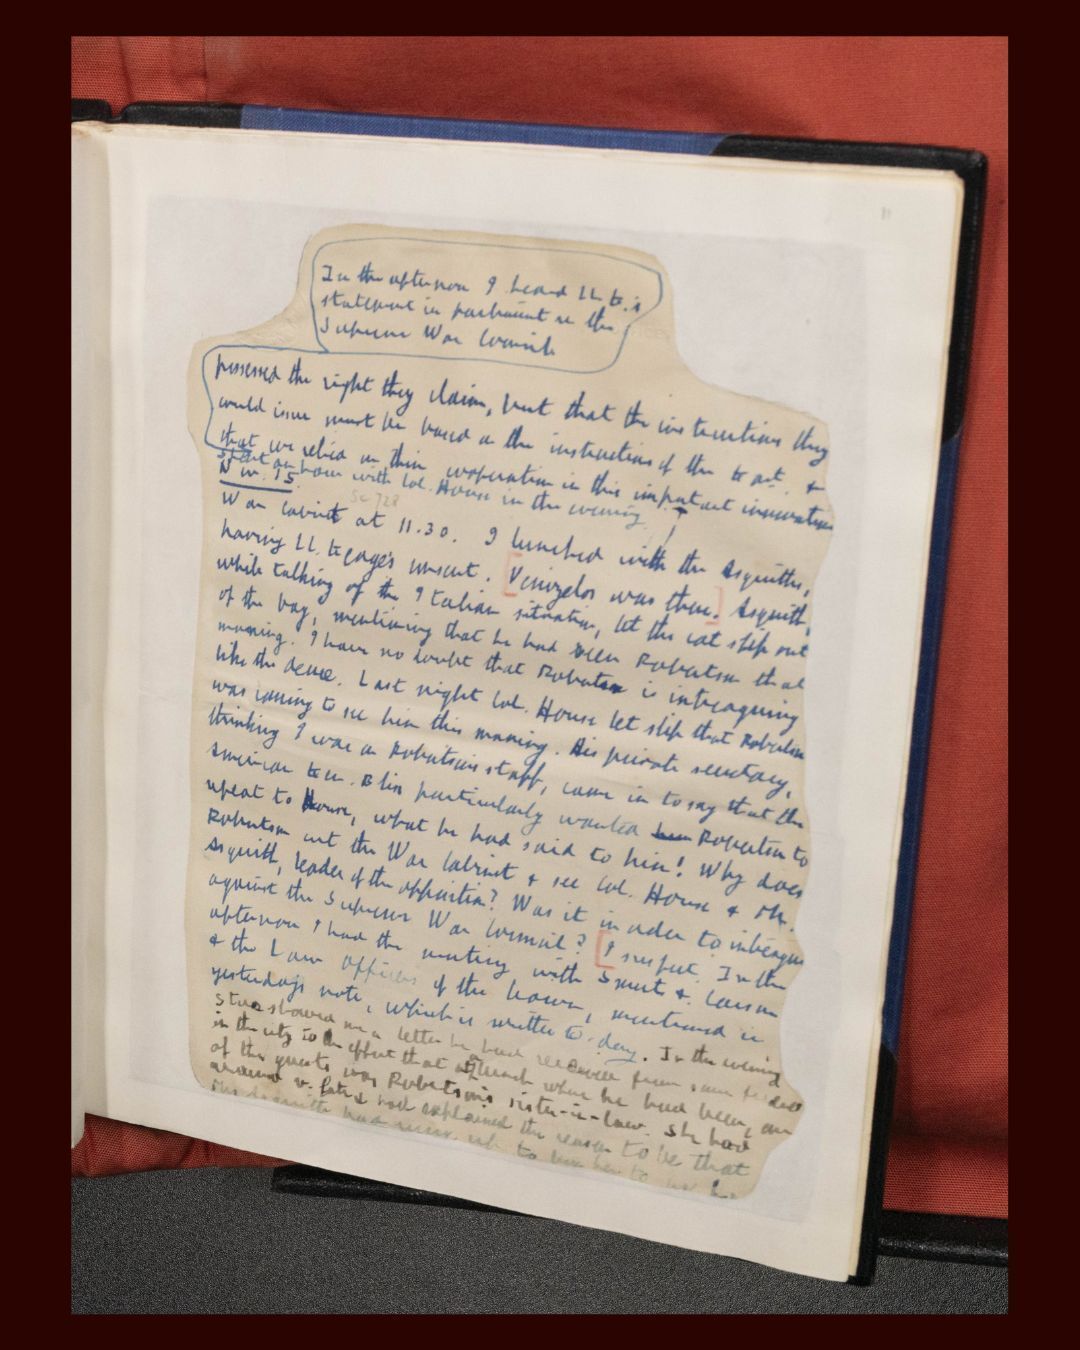 In the afternoon I heard Ll. G.'s
statement in parliament re the
Supreme War Council
possessed the right they claim, but that the instructions they
would issue must be based on the instructions of the &
that we relied on their cooperation in this important innovation
spent an hour with Col. House in the evening
Nov. 15.
SC 728
War Cabinet at 11.30. I lunched with the Asquiths,
having Ll. George's consent. [Venizelos was there.] Asquith,
while talking of the Italian situation, let the cat slip out
of the bag, mentioning that he had seen Robertson that
morning. I have no doubt that Robertson is intreaguing
like the deuce. Last night Col. House let slip that Robertson
was coming to see him this morning. His private secretary,
thinking I was on Robertson's staff, came in to say that the
American Gen. Bliss particularly wanted Robertson to
repeat to House, what he had said to him! Why does
Robertson cut the War Cabinet & see Col. House & Mr.
Asquith, leader of the opposition? Was it in order to intreague
against the Supreme War Council? [I suspect. In the
afternoon I had the meeting with Smuts & Carson
& the Law Officers of the Crown, mentioned in
yesterday's note, which is written to-day. In the evening
showed me a letter he had received from some friend
in the city to the effect that at lunch where he had been, one
of the guests was Robertson's sister-in-law. She had
arrived v. late & had explained the reason to be that
Mrs Asquith had to